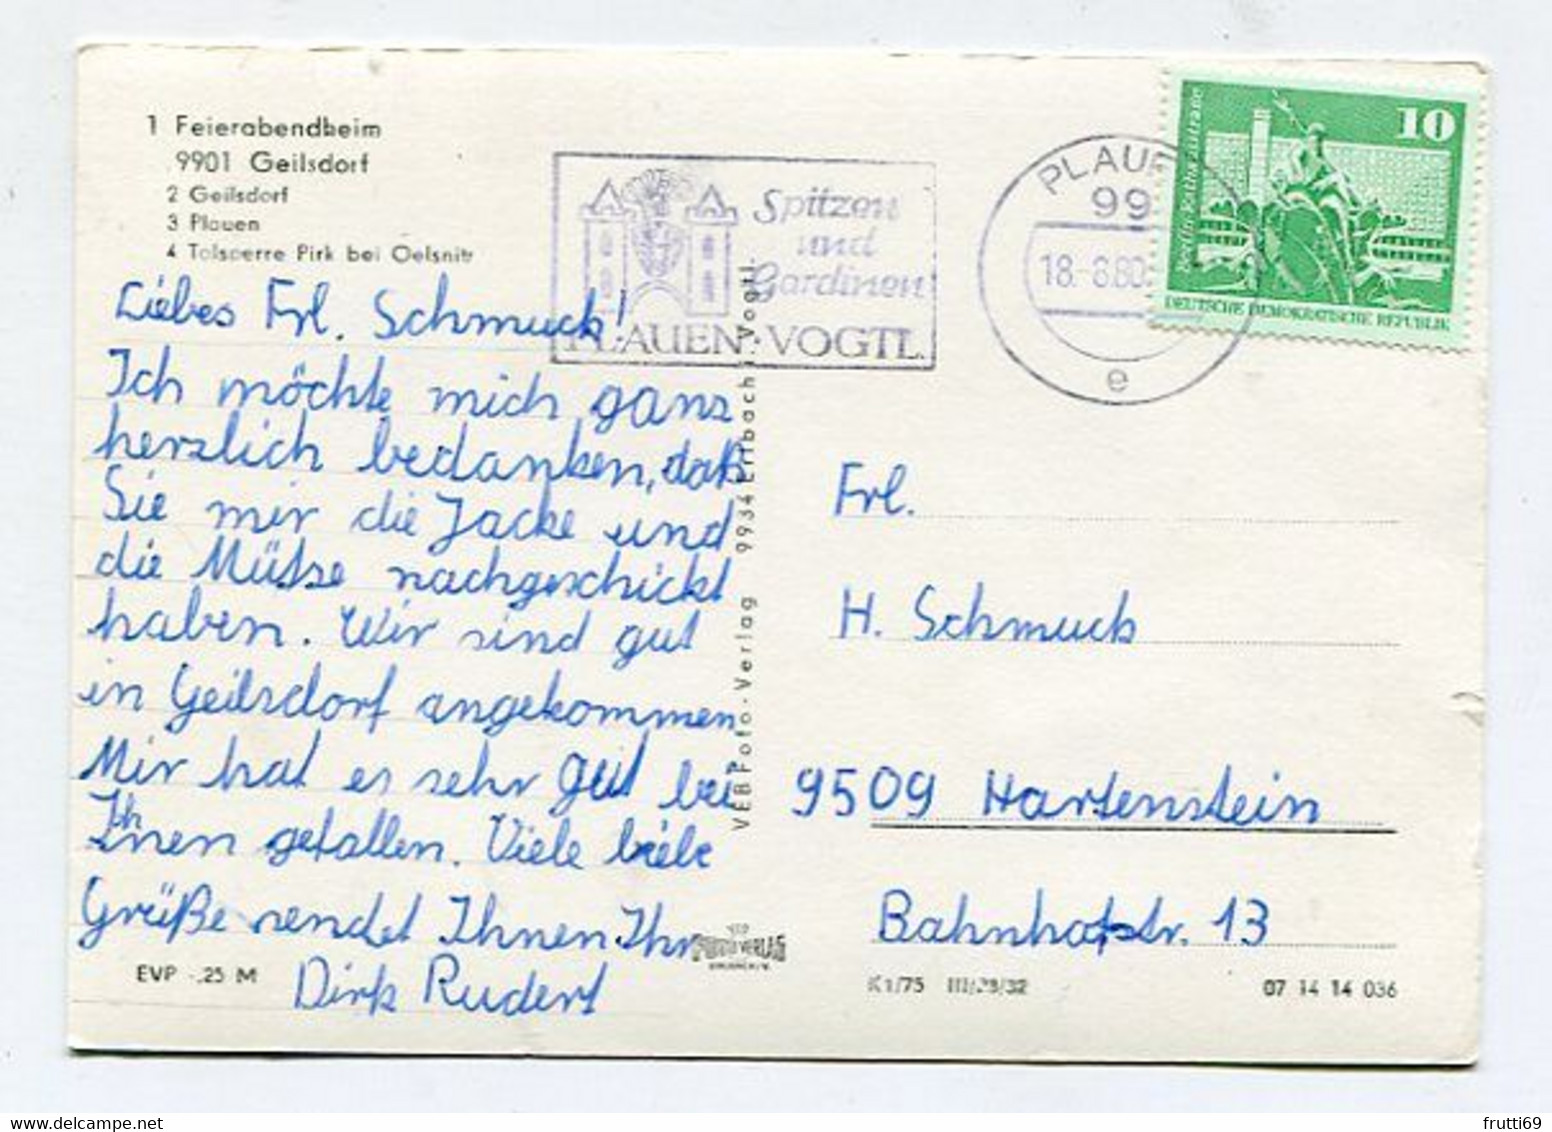 1 Feierabendheim
9901 Geilsdorf
2 Geilsdorf
3 Plauen
4 Talsperre Pirk bei Oelsnitz
Spitzen
und
Gardinen
PLAUEN·VOGTL.
PLAUE
99
18.-8.80
e
10
Berlin-Rathausstraße
DEUTSCHE DEMOKRATISCHE REPUBLIK
Liebes Frl. Schmuck!
Ich möchte mich ganz
herzlich bedanken, daß
Sie mir die Jacke und
die Mütze nachgeschickt
haben. Wir sind gut
in Geilsdorf angekommen
Mir hat es sehr gut bei
Ihnen gefallen. Viele liebe
Grüße sendet Ihnen Ihr
Dirk Rudert
EVP -,25 M
VEB Foto-Verlag 9934 Erlbach i. Vogtl.
FOTO VERLAG
Frl.
H. Schmuck
9509 Hartenstein
Bahnhofstr. 13
K1/75 III/28/32
07 14 14 036
frutti69